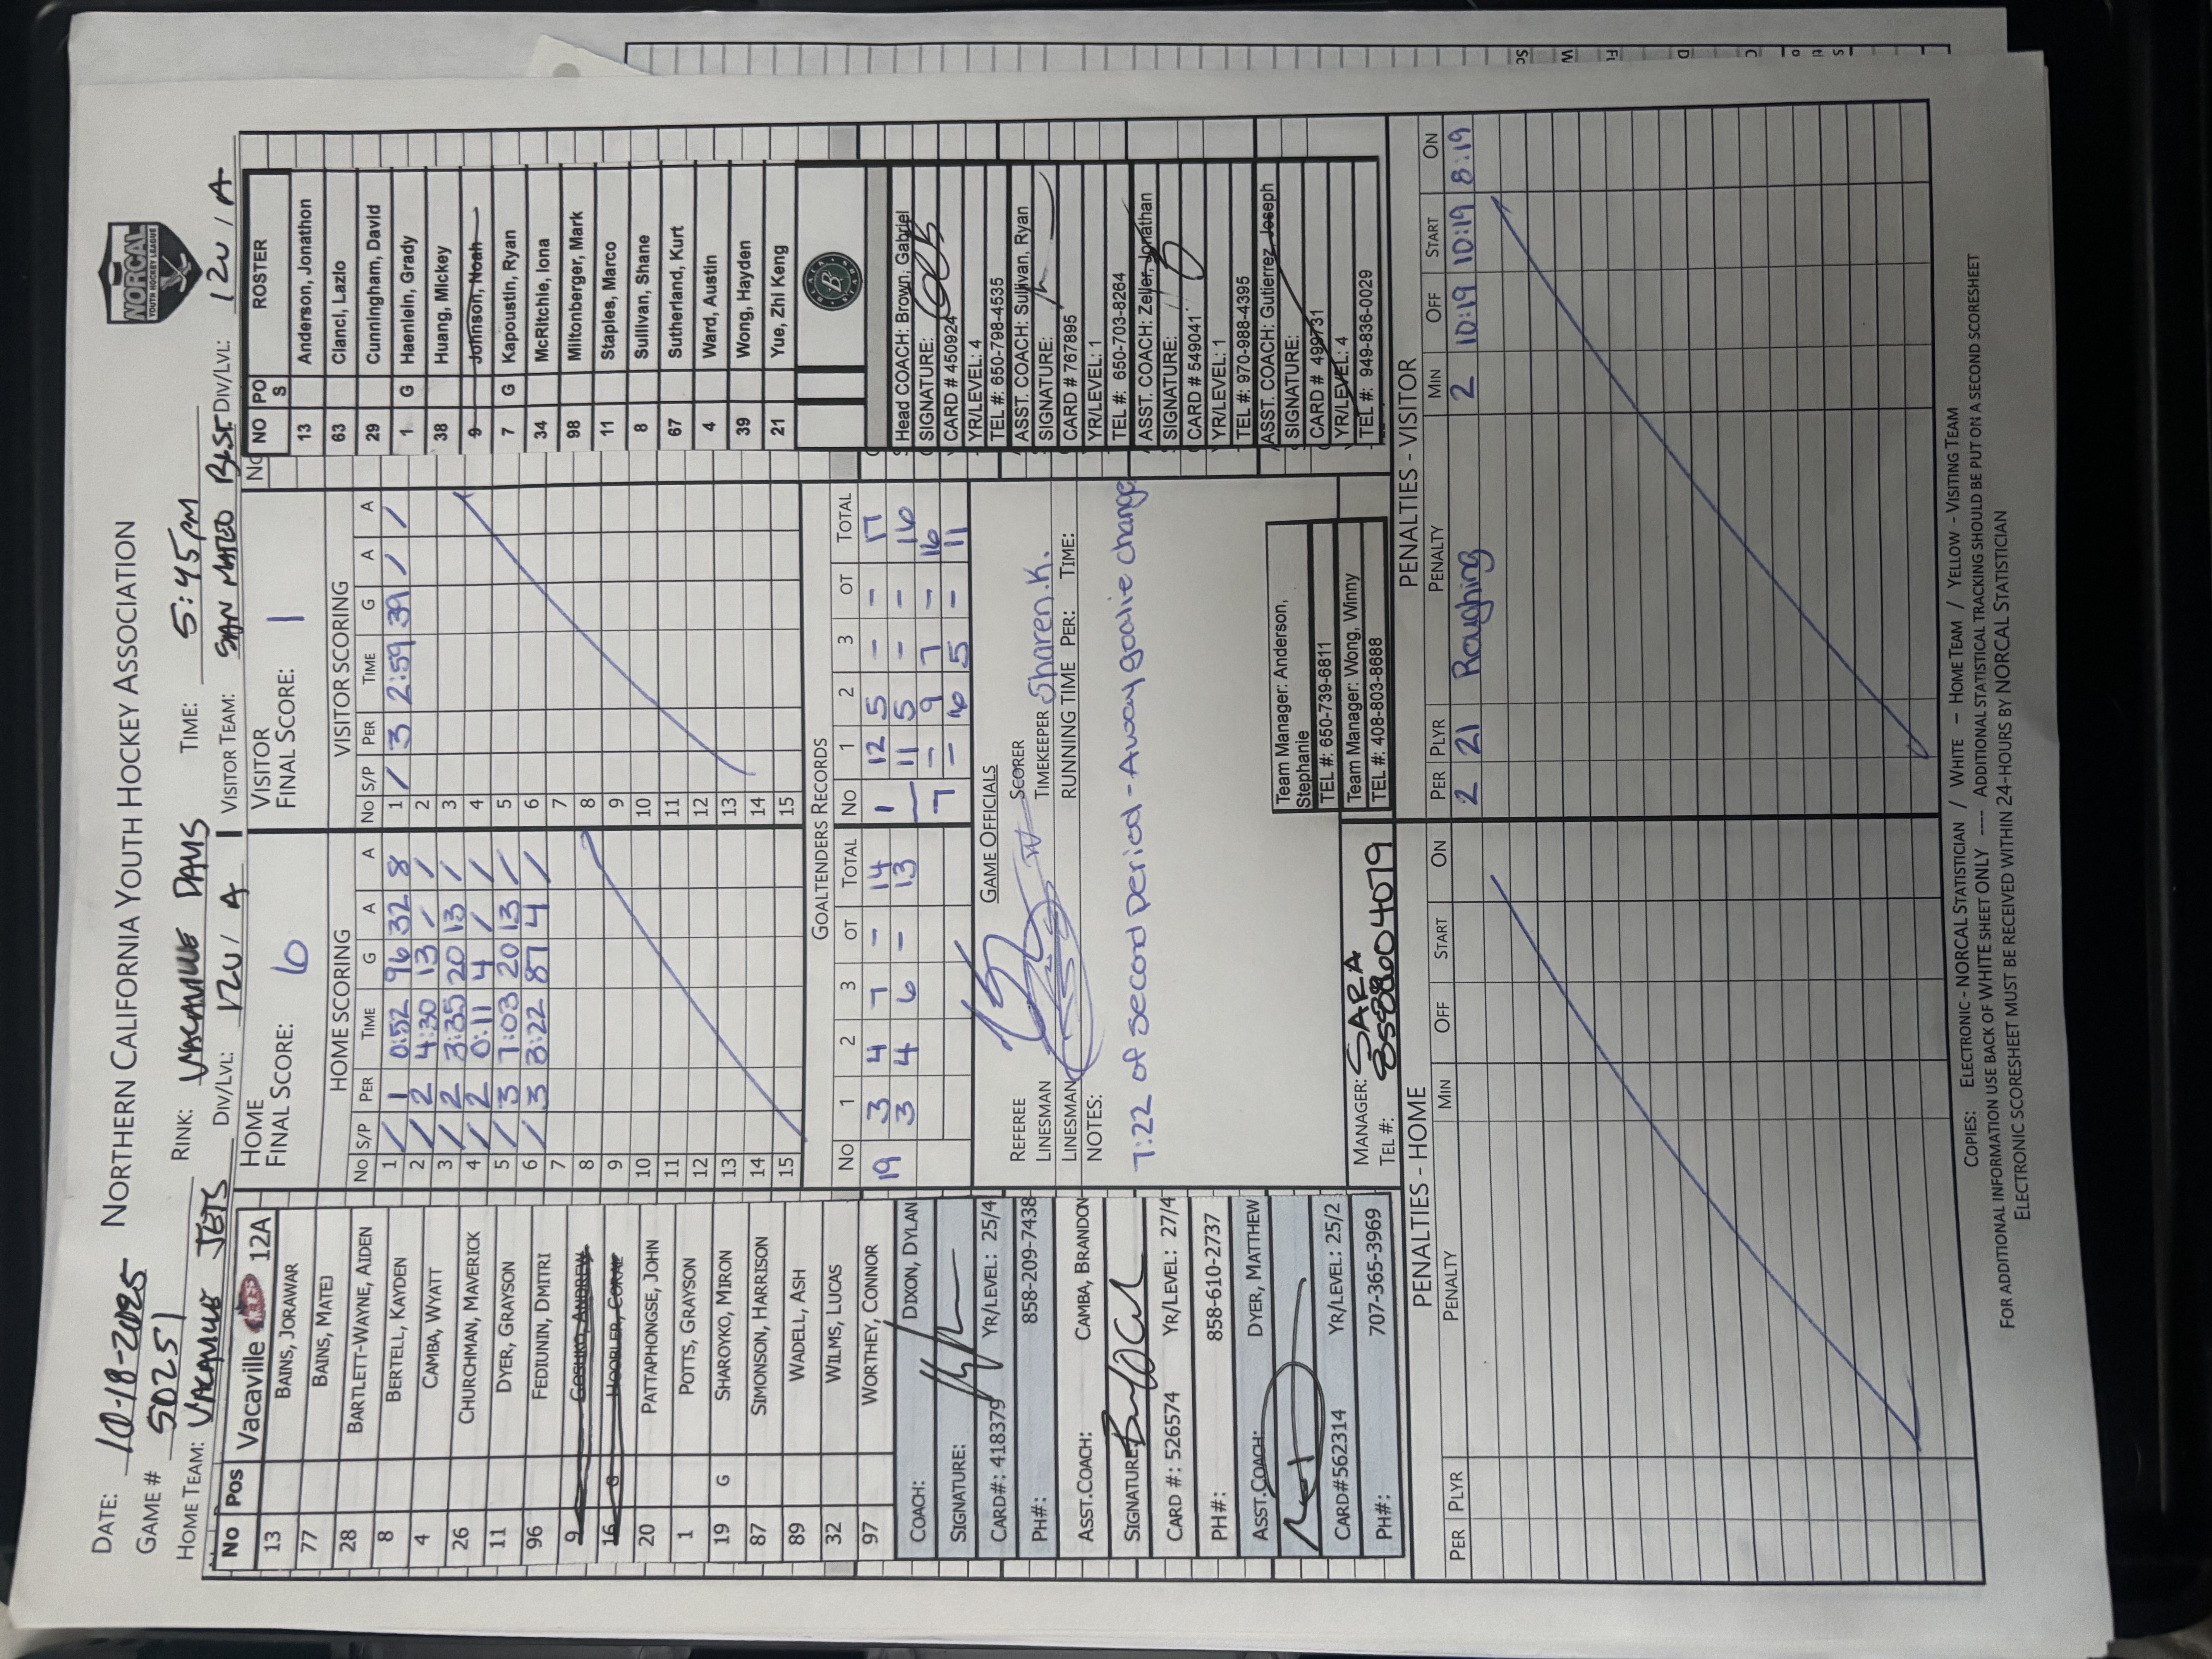 DATE: 10-18-2025 NORTHERN CALIFORNIA YOUTH HOCKEY ASSOCIATION
NORCAL
YOUTH HOCKEY LEAGUE
GAME # 50251 RINK: VACAVILLE DAVIS TIME: 5:45PM
HOME TEAM: VACAVILLE JETS DIV/LVL: 12U / A VISITOR TEAM: SAN MATEO BLST DIV/LVL: 12U / A
No Pos Vacaville 12A
13 BAINS, JORAWAR
77 BAINS, MATEJ
28 BARTLETT-WAYNE, AIDEN
8 BERTELL, KAYDEN
4 CAMBA, WYATT
26 CHURCHMAN, MAVERICK
11 DYER, GRAYSON
96 FEDIUNIN, DMITRI
9 GOSHKO, ANDREW
16 G HOOBLER, CORAL
20 PATTAPHONGSE, JOHN
1 POTTS, GRAYSON
19 G SHAROYKO, MIRON
87 SIMONSON, HARRISON
89 WADELL, ASH
32 WILMS, LUCAS
97 WORTHEY, CONNOR
COACH: DIXON, DYLAN
SIGNATURE:
CARD#: 418379 YR/LEVEL: 25/4
PH#: 858-209-7438
ASST.COACH: CAMBA, BRANDON
SIGNATURE:
CARD #: 526574 YR/LEVEL: 27/4
PH#: 858-610-2737
ASST.COACH: DYER, MATTHEW
CARD#562314 YR/LEVEL: 25/2
PH#: 707-365-3969
HOME
FINAL SCORE: 6
HOME SCORING
NO S/P PER TIME G A A
1 / 1 0:52 96 32 8
2 / 2 4:30 13 / /
3 / 2 3:35 20 13 /
4 / 2 0:11 4 / /
5 / 3 7:03 20 13 /
6 / 3 3:22 87 4 /
7
8
9
10
11
12
13
14
15
VISITOR
FINAL SCORE: 1
VISITOR SCORING
NO S/P PER TIME G A A
1 / 3 2:59 39 / /
2
3
4
5
6
7
8
9
10
11
12
13
14
15
GOALTENDERS RECORDS
NO 1 2 3 OT TOTAL NO 1 2 3 OT TOTAL
19 3 4 7 - 14 1 12 5 - - 17
3 4 6 - 13 11 5 - - 16
7 - 9 7 - 16
- 6 5 - 11
GAME OFFICIALS
REFEREE SCORER
LINESMAN TIMEKEEPER Sharen.K.
LINESMAN RUNNING TIME PER: TIME:
NOTES:
7:22 of second period - Away goalie change
Team Manager: Anderson,
Stephanie
TEL #: 650-739-6811
Team Manager: Wong, Winny
TEL #: 408-803-8688
MANAGER: SARA
TEL #: 8588004079
NO POS ROSTER
13 Anderson, Jonathon
63 Ciancl, Lazlo
29 Cunningham, David
1 G Haenlein, Grady
38 Huang, Mickey
9 Johnson, Noah
7 G Kapoustin, Ryan
34 McRitchie, Iona
98 Miltonberger, Mark
11 Staples, Marco
8 Sullivan, Shane
67 Sutherland, Kurt
4 Ward, Austin
39 Wong, Hayden
21 Yue, Zhi Keng
B
Head COACH: Brown, Gabriel
SIGNATURE:
CARD # 450924
YR/LEVEL: 4
TEL #: 650-798-4535
ASST. COACH: Sullivan, Ryan
SIGNATURE:
CARD # 767895
YR/LEVEL: 1
TEL #: 650-703-8264
ASST. COACH: Zeller, Jonathan
SIGNATURE:
CARD # 549041
YR/LEVEL: 1
TEL #: 970-988-4395
ASST. COACH: Gutierrez, Joseph
SIGNATURE:
CARD # 499731
YR/LEVEL: 4
TEL #: 949-836-0029
PENALTIES - HOME
PER PLYR PENALTY MIN OFF START ON
PENALTIES - VISITOR
PER PLYR PENALTY MIN OFF START ON
2 21 Roughing 2 10:19 10:19 8:19
COPIES: ELECTRONIC - NORCAL STATISTICIAN / WHITE – HOME TEAM / YELLOW - VISITING TEAM
FOR ADDITIONAL INFORMATION USE BACK OF WHITE SHEET ONLY ---- ADDITIONAL STATISTICAL TRACKING SHOULD BE PUT ON A SECOND SCORESHEET
ELECTRONIC SCORESHEET MUST BE RECEIVED WITHIN 24-HOURS BY NORCAL STATISTICIAN